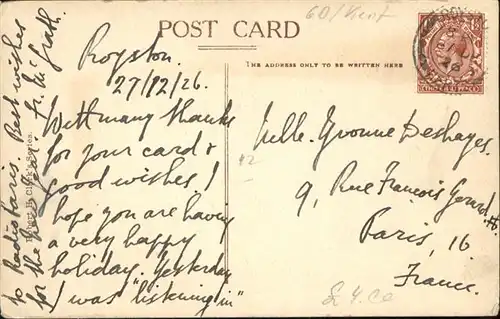 POST CARD
60/ Kent
Royston.
27/12/26.
With many thanks
for your card &
good wishes. I
hope you are having
a very happy
holiday. Yesterday
I was "listening in"
to Radio Paris. Best wishes
for the
Fr. McGrath.
THE ADDRESS ONLY TO BE WRITTEN HERE
Mlle. Yvonne Deshayes
9, Rue François Gerard
Paris, 16
France.